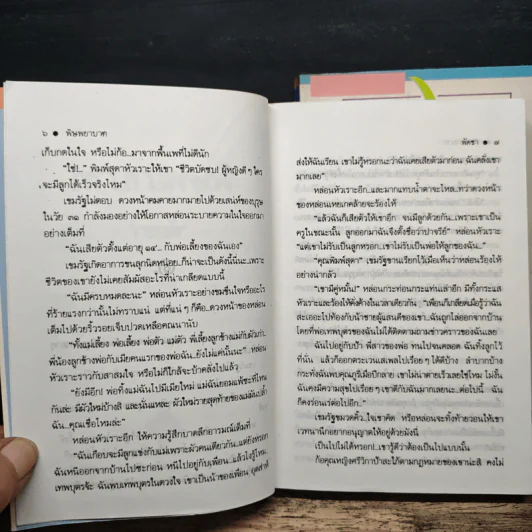 ๖ ● พิษพยาบาท
เก็บกดในใจ หรือไม่ก็อ...มาจากพื้นเพที่ไม่ดีนัก
“ใช่!...” พิมพ์สุดาหัวเราะให้เขา “ชีวิตบัดซบ! ผู้หญิงดีๆ ใคร
จะมีลูกได้เร็วจริงไหม”
เขมรัฐไม่ตอบ ดวงหน้าคมคายมากมายไปด้วยเสน่ห์ของบุรุษ
ในวัย ๓๑ กำลังมองอย่างให้โอกาสหล่อนระบายความในใจออกมา
อย่างเต็มที่
“ฉันเสียตัวตั้งแต่อายุ ๑๙... กับพ่อเลี้ยงของฉันเอง”
เขมรัฐเกิดอาการขนลุกนิดหน่อย...ก็น่าจะเป็นดังนี้นี่นะ...เพราะ
ชีวิตของเขายังไม่เคยสัมผัสอะไรที่น่าเกลียดแบบนี้
“ฉันมีครบหมดละนะ” หล่อนหัวเราะอย่างขมขื่นใจหรืออะไร
ที่ร้ายแรงกว่านั้นไม่ทราบแน่ แต่ที่แน่ๆ ก็คือ...ดวงหน้าของหล่อน
เต็มไปด้วยริ้วรอยเจ็บปวดเหลือคณานับ
“ทั้งแม่เลี้ยง พ่อเลี้ยง พ่อตัว แม่ตัว พี่เลี้ยงลูกข้างแม่กับผัวเก่า..
พี่น้องลูกข้างพ่อกับเมียคนแรกของพ่อฉัน...ยังไม่แค่นั้นนะ” หล่อน
หัวเราะราวกับสาสมใจ หรือไม่ก็ใกล้จะบ้าคลั่งไปแล้ว
“ยังมีอีก! พ่อทิ้งแม่ฉันไปมีเมียใหม่ แม่ฉันยอมแพ้ซะที่ไหน
กันล่ะ มีผัวใหม่บ้างสิ และนั่นแหละ ผัวใหม่รายสุดท้ายของแม่ก็มาปล้ำ
ฉัน...คุณเชื่อไหมล่ะ”
หล่อนหัวเราะอีก ให้ความรู้สึกบาดลึกอารมณ์เต็มที่
“ฉันเกือบจะมีลูกแข่งกับแม่เพราะผัวคนเดียวกัน...แต่ยังหรอก
ฉันหนีออกจากบ้านไปซะก่อน หนีไปอยู่กับเพื่อน...แล้วไงรู้ไหม...
เทพบุตรจ้ะ ฉันพบเทพบุตรในดวงใจ เขาเป็นน้าของเพื่อน อุตส่าห์
พัดชา ● ๗
ส่งให้ฉันเรียน เขาไม่รู้หรอกนะว่าฉันเคยเสียตัวมาก่อน ฉันคลั่งเขา
มากเลย”
หล่อนหัวเราะอีก...และมากแทบน้ำตาจะไหล...ทว่าดวงหน้า
ของหล่อนเหยเกคล้ายจะร้องไห้
“แล้วฉันก็เสียตัวให้เขาอีก จนมีลูกด้วยกัน...เพราะเขาเป็น
ครูในชณะนั้น ลูกออกมาฉันจึงตั้งชื่อว่าปจรีย์” หล่อนหัวเราะ
“แต่เขาไม่รับเป็นลูกหรอก...เขาไม่รับเป็นพ่อให้ลูกของฉัน...”
“คุณพิมพ์สุดา” เขมรัฐขานเรียกไว้เมื่อเห็นว่าหล่อนร้องไห้
อย่างน่ากลัว
“เขามีคู่หมั้น!” หล่อนกระท่อนกระแท่นเล่าอีก มีทั้งกระแส
หัวเราะและร้องไห้คั่งค้างในเวลาเดียวกัน “เพื่อนก็เกลียดเมื่อรู้ว่าฉัน
สะเออะไปท้องกับน้าชายผู้แสนดีของเขา...ฉันถูกไล่ออกจากบ้าน
โดยที่พ่อเทพบุตรของฉันไม่ได้ติดตามถามข่าวคราวของฉันเลย
ฉันไปอยู่กับป้า พี่สาวของพ่อ ทนไปจนคลอด ฉันทิ้งลูกไว้
ที่นั่น แล้วก็ออกตระเวนเสเพลไปเรื่อยๆ ได้ดีบ้าง ลำบากบ้าง
กระทั่งฉันพบคุณภูริเมื่อปีกลาย เขาไม่น่าตายเร็วเลยใช่ไหม ไม่งั้น
ฉันคงมีความสุขไปเรื่อยๆ เขาดีกับฉันมากเลยนะ...ต่อไปนี้ ฉัน
ก็คงร่อนเร่ต่อไปอีก...”
เขมรัฐขมวดคิ้ว..ใจเขาคิด หรือหล่อนจะทั้งท้ายวอนให้เขา
เวทนานึกอยากอนุญาตให้อยู่ด้วยนัก
เป็นไปไม่ได้หรอก!...เขารู้ดีว่าต้องเป็นไปแบบนั้น
ก็อคุณหญิงศรีวิภาป้าสะใภ้ตามกฎหมายของเขาน่ะสิ คงไม่